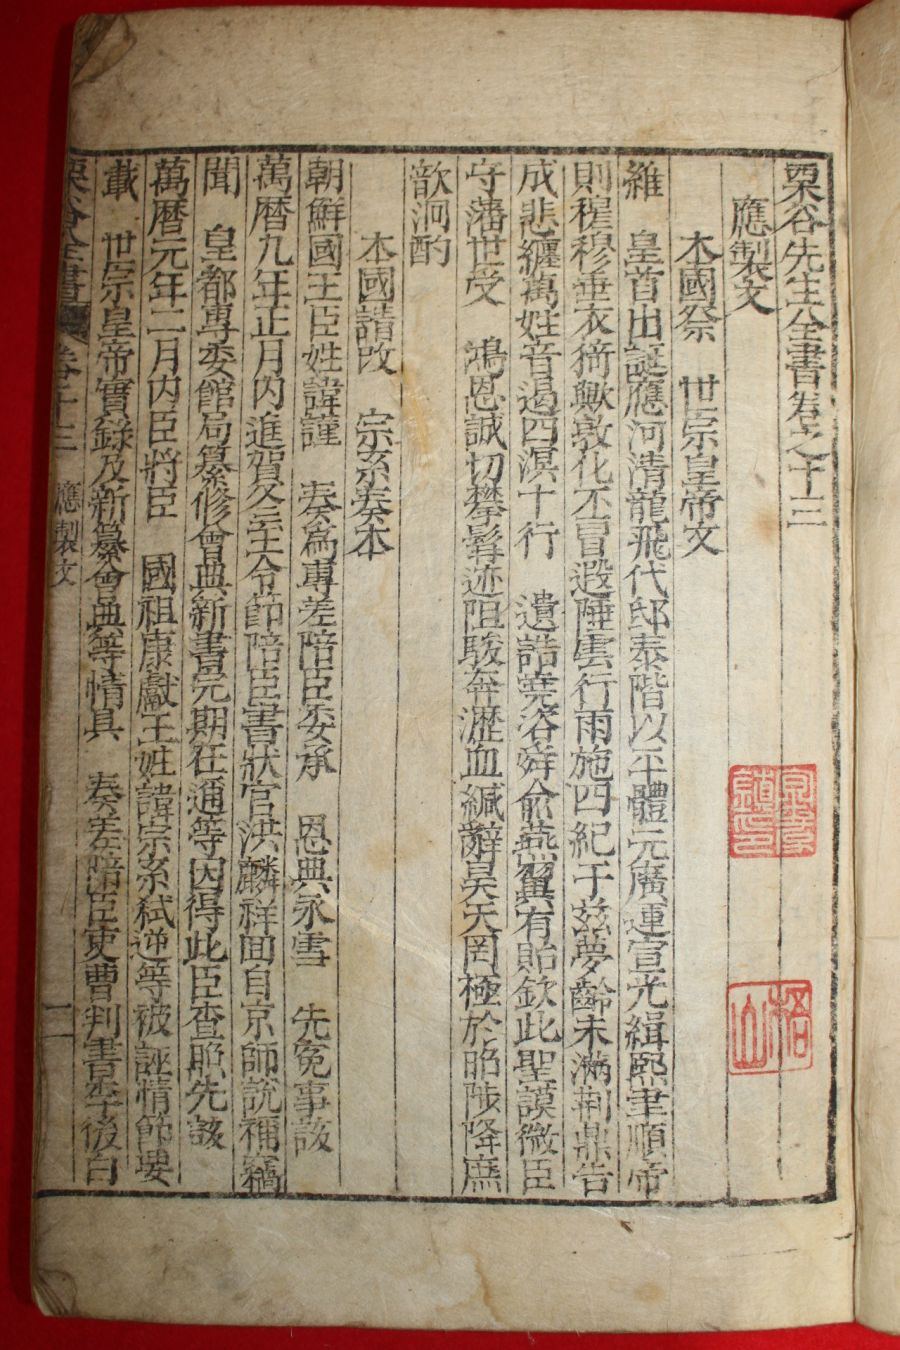 栗谷先生全書卷之十三
應製文
本國祭 世宗皇帝文
維 皇首出誕應河清龍飛代邸泰階以平體元廣運宣光緝熙聿順帝
則穆穆垂衣猗歟敦化丕冒遐陲雲行雨施四紀于玆夢齡未滿荆鼎告
成悲纏萬姓音遏四溟十行 遺誥堯咨舜俞燕翼有貽欽此聖謨微臣
守藩世受 鴻恩誠切攀髥迹阻駿奔瀝血緘辭昊天罔極於昭陟降庶
歆泂酌
本國請改 宗系奏本
朝鮮國王臣姓諱謹 奏爲專差陪臣委承 恩典永雪 先寃事該
萬曆九年正月內進賀冬至令節陪臣書狀官洪麟祥回自京師說稱竊
聞 皇都專委館局纂修會典新書完期在通等因得此臣查照先該
萬曆元年二月內臣將臣 國祖康獻王姓諱宗系弑逆等被誣情節要
載 世宗皇帝實錄及新纂會典等情具 奏差陪臣吏曹判書李後白
栗谷全書 卷十三 應製文 一
梧山